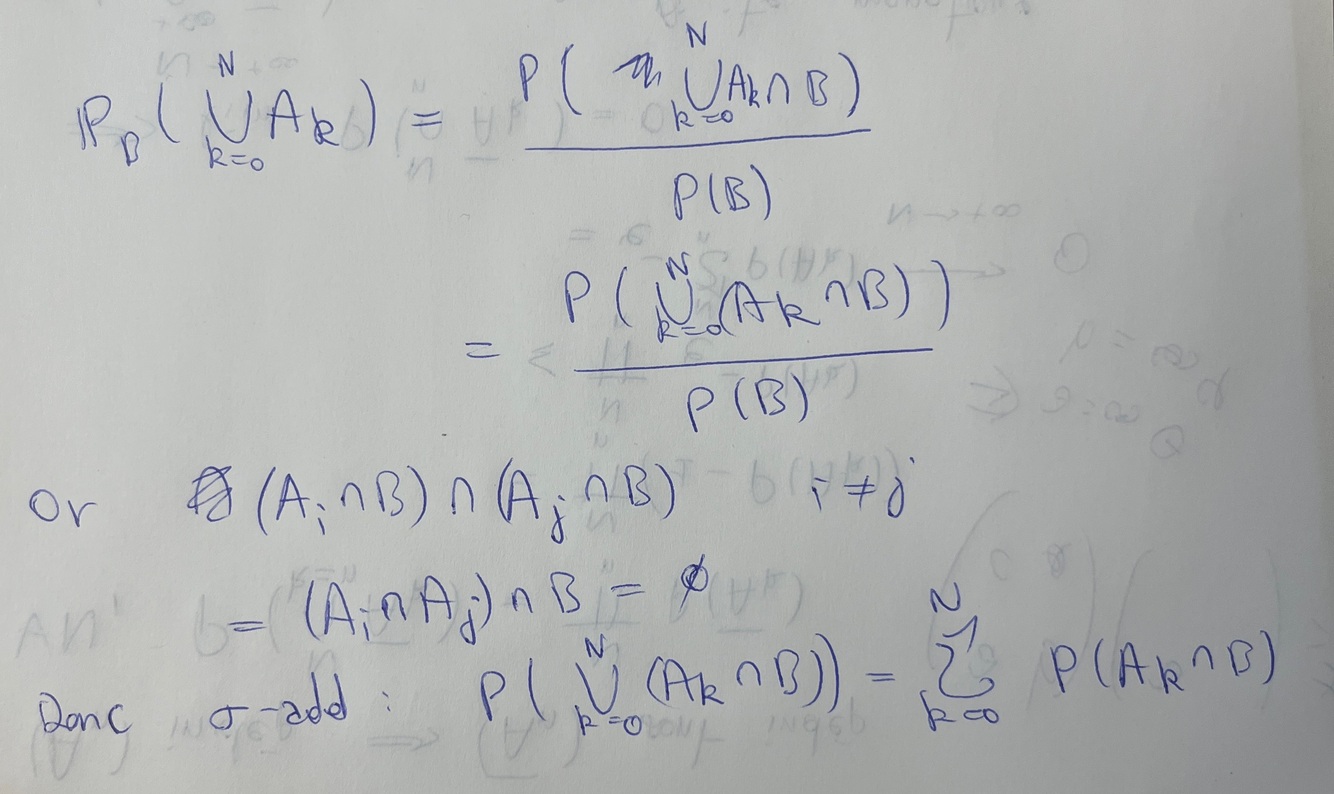 ℙ_B(⋃_{k=0}^{N} A_k) = P(⋃_{k=0}^{N} A_k ∩ B) / P(B)
= P(⋃_{k=0}^{N} (A_k ∩ B)) / P(B)
Or (A_i ∩ B) ∩ (A_j ∩ B) i ≠ j
= (A_i ∩ A_j) ∩ B = ∅
Donc σ-add : P(⋃_{k=0}^{N} (A_k ∩ B)) = ∑_{k=0}^{N} P(A_k ∩ B)